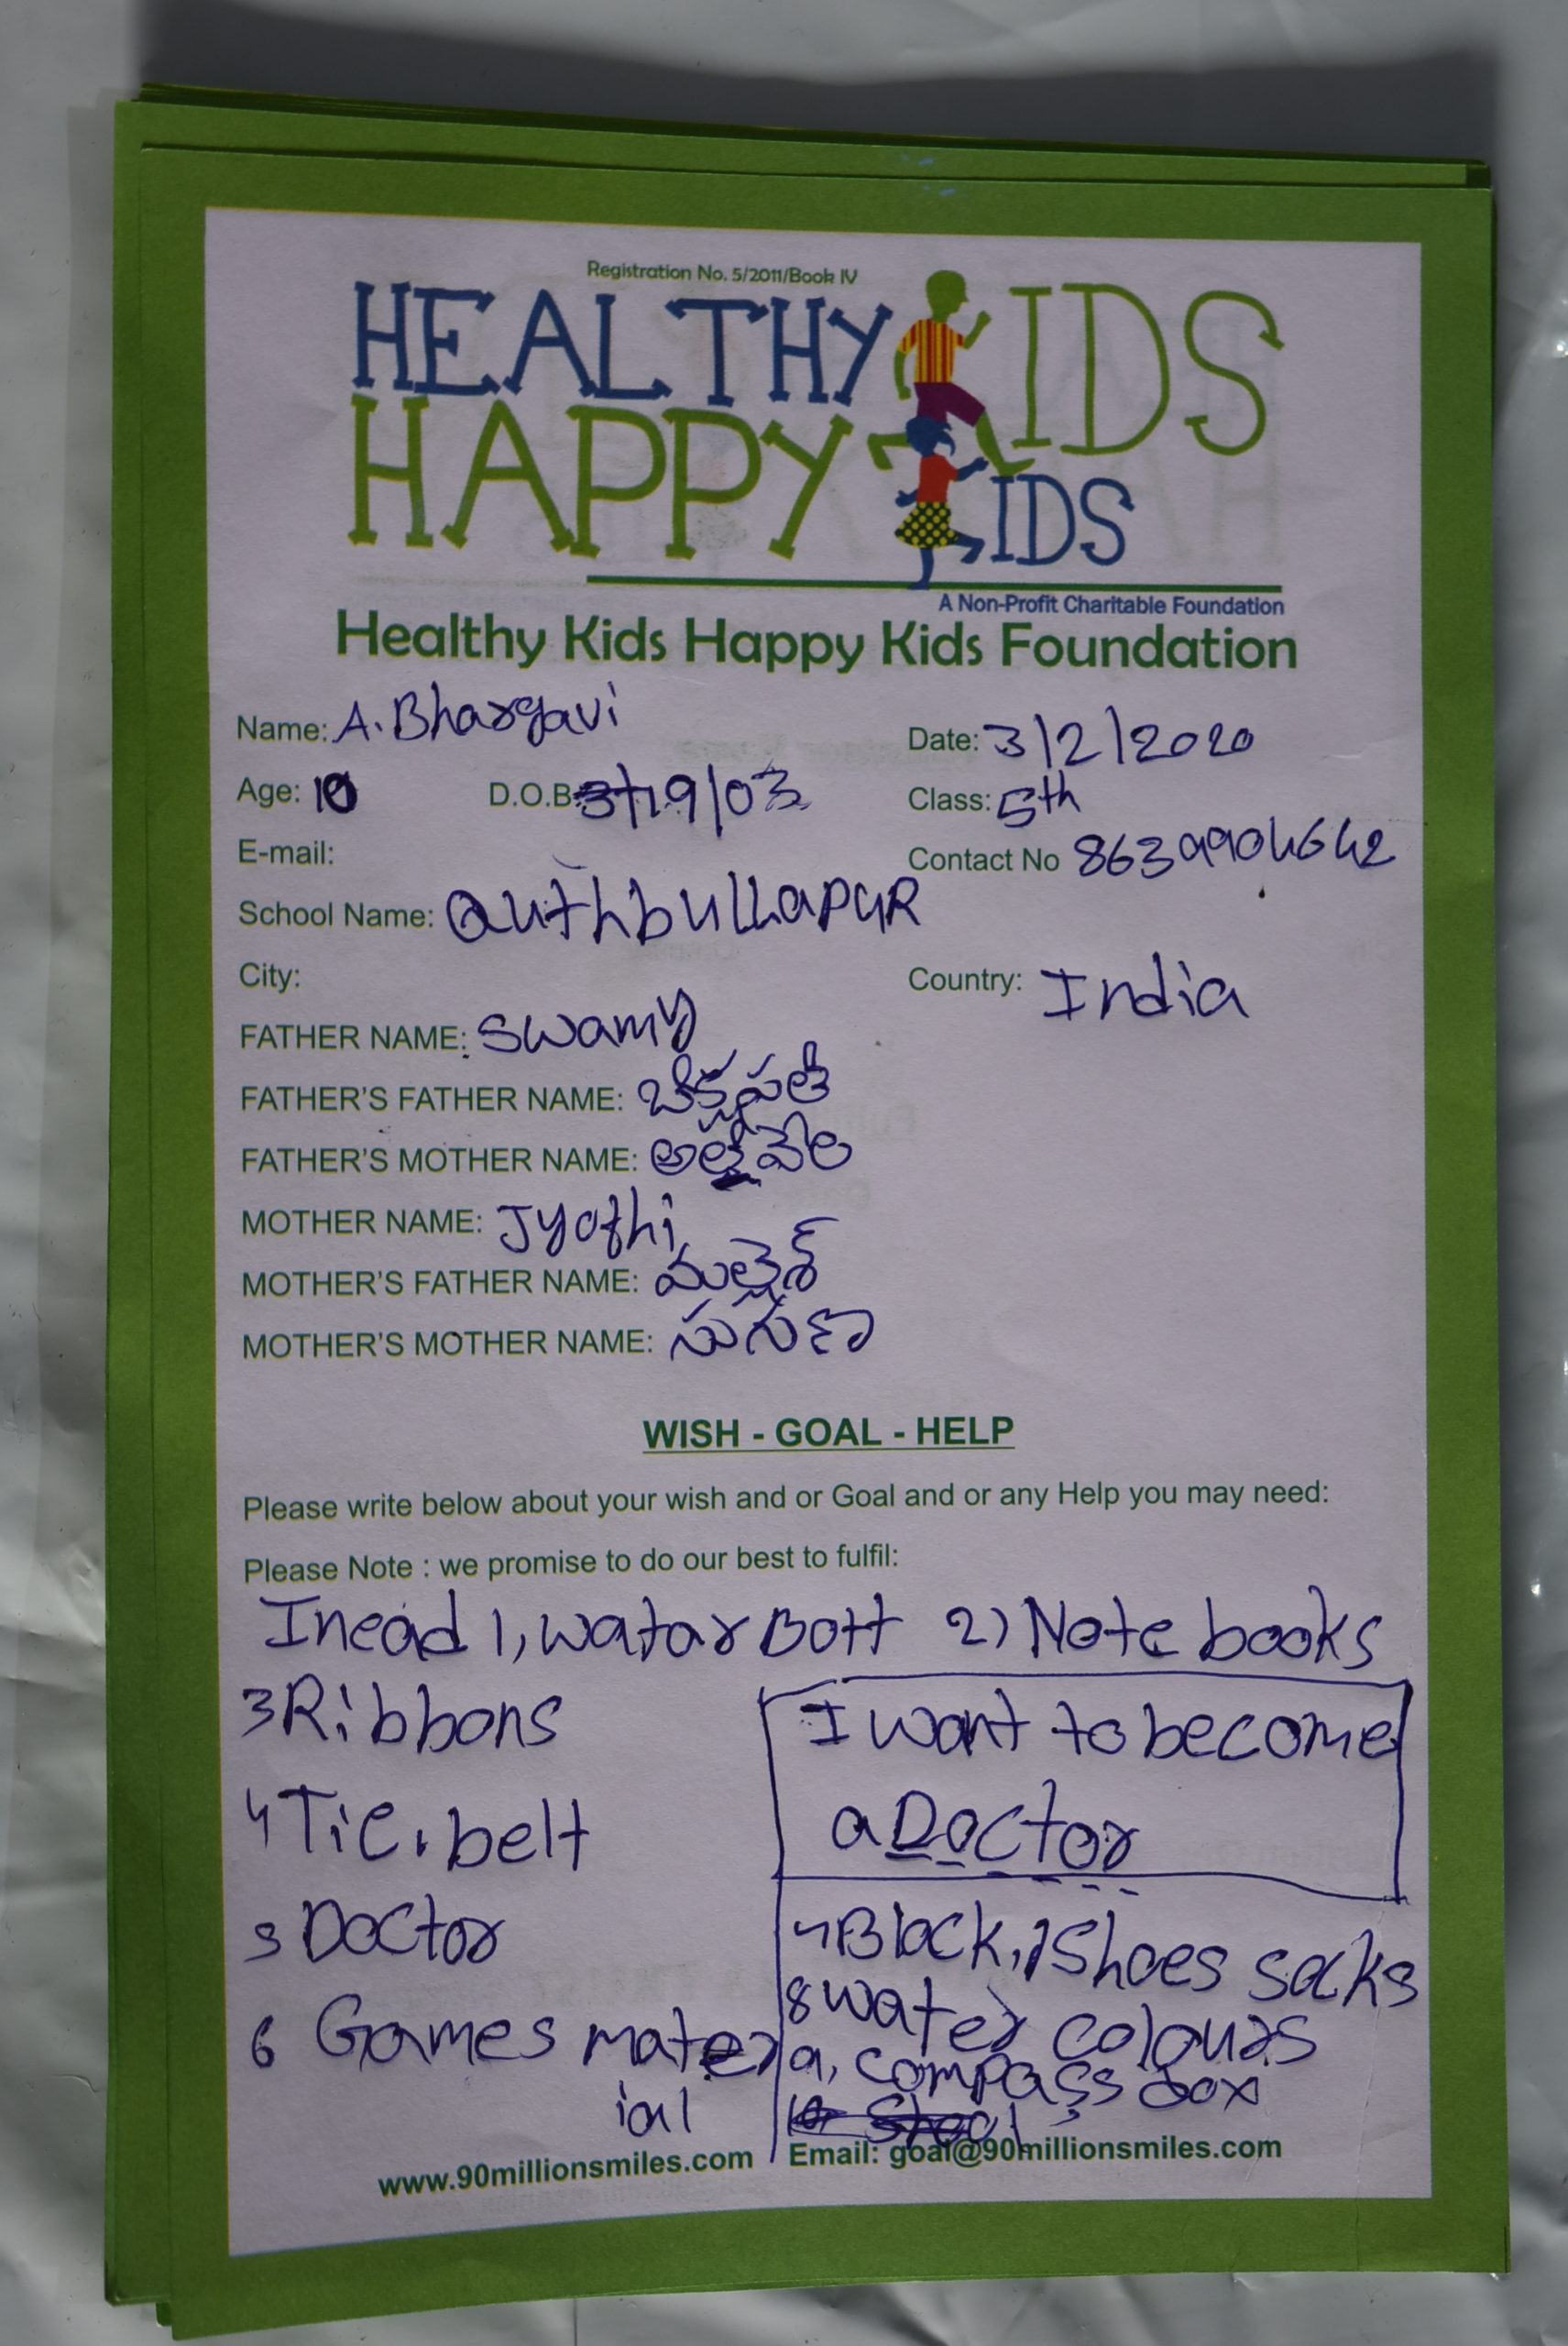 Registration No. 5/2011/Book IV
HEALTHY KIDS
HAPPY KIDS
A Non-Profit Charitable Foundation
Healthy Kids Happy Kids Foundation
Name: A. Bhargavi Date: 3/2/2020
Age: 10 D.O.B 19/03 Class: 5th
E-mail: Contact No 8639904642
School Name: QuthbullapuR
City: Country: India
FATHER NAME: Swamy
FATHER'S FATHER NAME: బిక్షపతి
FATHER'S MOTHER NAME:
MOTHER NAME: Jyothi
MOTHER'S FATHER NAME: మల్లెశ్
MOTHER'S MOTHER NAME: సుగుణ
WISH - GOAL - HELP
Please write below about your wish and or Goal and or any Help you may need:
Please Note : we promise to do our best to fulfil:
I nead 1, watar Bott 2) Note books
3 Ribbons
4 Tie. belt
5 Doctor
6 Games mater
ial
I want to become
a Doctor
7 Black, Shoes socks
8 water colours
9, compass box
www.90millionsmiles.com Email: goal@90millionsmiles.com